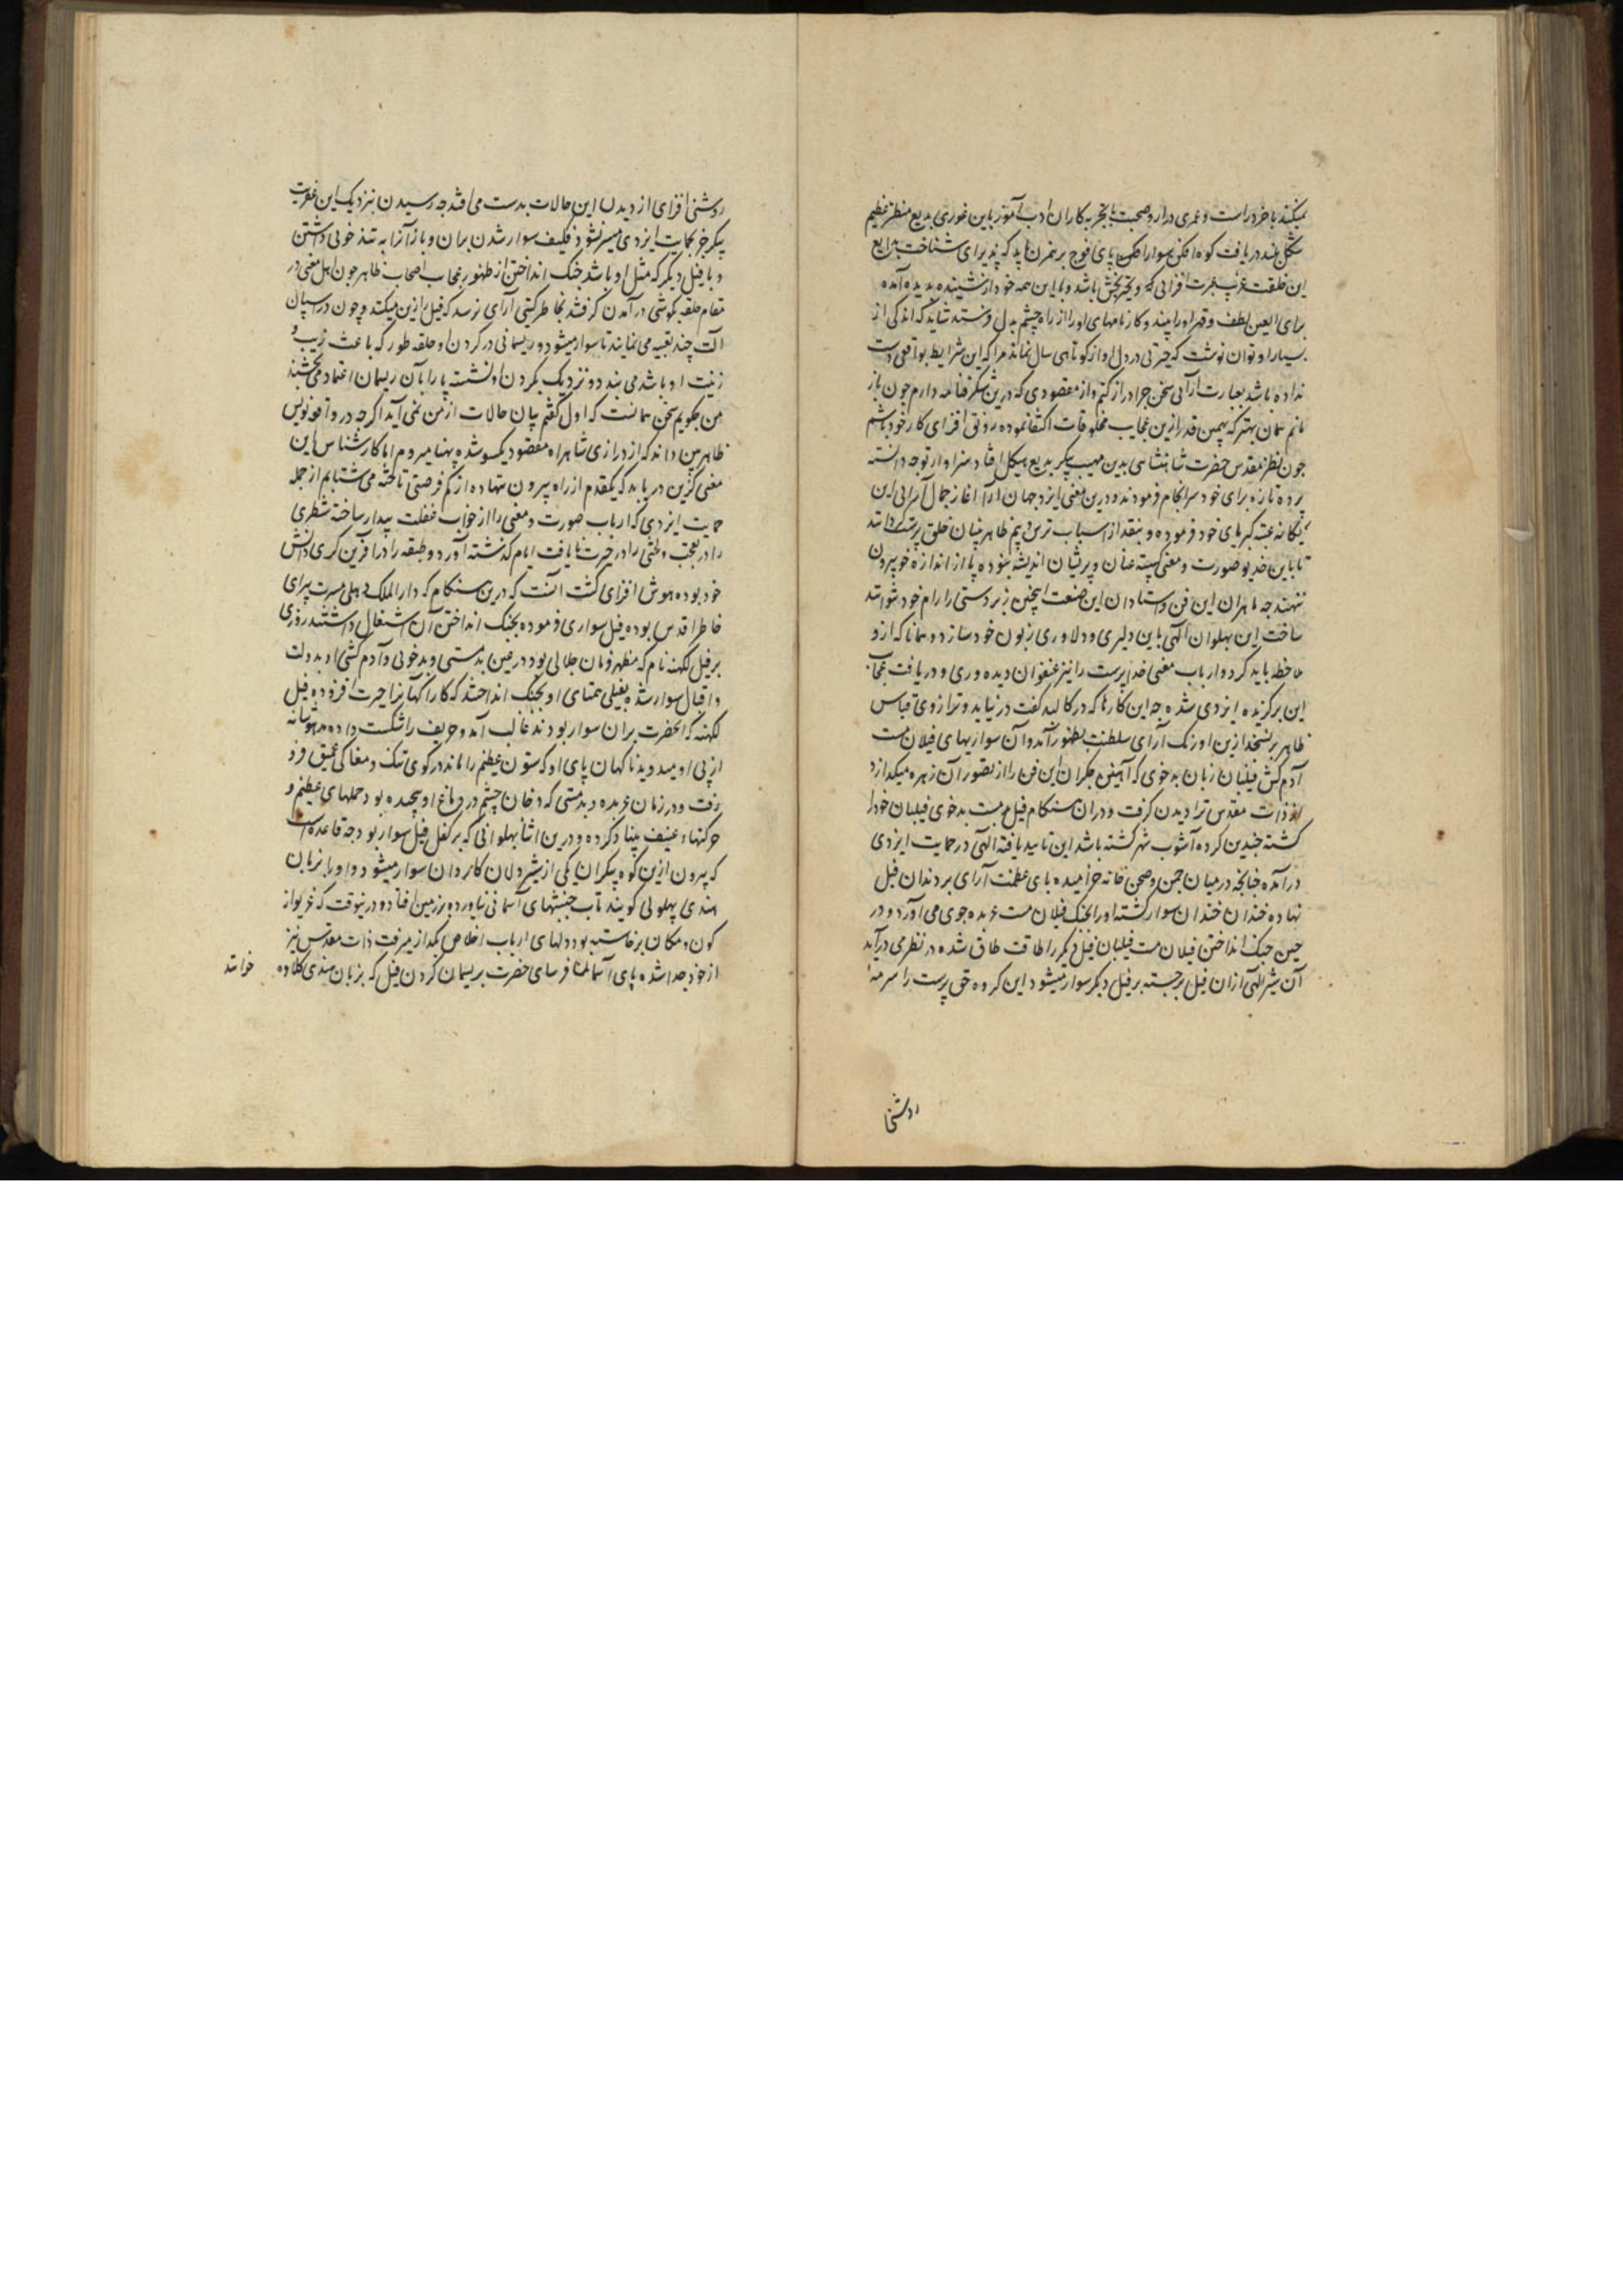 میکند با خرد راست و عمری دراز و صحبت با تجربه کاران ادب آموز باین غوری بدیع منظر عظیم
شکل بلند دریافت کوه افکن سوار افکن پای فوج برهمزن باید که پذیرای شناخت بدایع
این خلقت غریب عبرت افزای و تحیر بخش باشد و با این همه خود از نشیننده پدید آمده
برای العین لطف و قهر اورا بیند و کارنامهای اورا از راه چشم بدل فرستد شاید که اندکی از
بسیار او توان نوشت که حیرتی در دل او از کوتاهی سال نماند مرا که این شرایط بواقعی دست
نداده باشد بعبارت آرائی سخن چرا دراز کنم و از مقصودی که درین شکرفنامه دارم چون باز
مانم همان بهتر که بهمین قدر ازین عجایب مخلوقات اکتفا نموده رونق افزای کار خود باشم
چون نظر مقدس حضرت شاهنشاهی بدین مهیب پیکر بدیع هیکل افتاد سزاوار توجه دانسته
پرده تازه برای خود سرانجام فرمودند و درین معنی ایزد جهان آرا آغاز جمال آرائی این
یگانه عتبه کبریای خود فرموده و بنقد از اسباب ترس و بیم ظاهر بینان خلق پرست گردانند
تا باین خدیو صورت و معنی عنان و پریشان اندیشه نبوده پا از اندازه خود بیرون
ننهند چه ماهران این فن و استادان این صنعت اینچنین زبردستی را رام خود نتوانند
ساخت این پهلوان الهی باین دلیری و دلاوری زبون خود سازد و همانا که ازو
ملاحظه باید کرد و ارباب معنی خدا پرست را نیز عنفوان دیده وری و دریافت عجایب
این برکزیده ایزدی شده چه این کارها که در کالبد گفت در نیاید و ترازوی قیاس
ظاهر برنسنجد ازین اورنک آرای سلطنت بظهور آمد و آن سواریهای فیلان مست
آدم کش فیلبان زبان بدخوی که آهنین جکران این فن را از تصور آن زهره میکدازد
از ذات مقدس تر ا دیدن گرفت و دران هنگام فیل مست بدخوی فیلبان خود را
کشته چندین کرده آشوب شهر گشته باشد این تایید یافته الهی در حمایت ایزدی
درآمده چنانچه در میان چمن و صحن خانه خرامیده پای عظمت آرای بر دندان فیل
نهاده خندان خندان سوار کشته اورا بجنک فیلان مست عربده جوی می آورد و در
حین جنک انداختن فیلان مست فیلبان فیل دیگر را طاقت طاق شده در نظر می درآید
آن شیر الهی ازان فیل برجسته بر فیل دیگر سوار میشود این کروه حق پرست را سرمه
روشنی
روشنی افزای از دیدن این حالات بدست می افتد چه رسیدن بنزدیک این عفریت
پیکر جز بحمایت ایزدی میسر نشود فکیف سوار شدن بران و باز آنرا به تند خوئی داشتن
و با فیل دیگر که مثل او باشد جنک انداختن از ظهور عجاب اصحاب ظاهر چون اهل معنی در
مقام حلقه بکوشی درآمدن گرفتند بخاطر گیتی آرای نرسد که فیل را زین میکنند و چون در اسپان
آلت چند تعبیه می نمایند تا سوار میشود و ریسمانی در گردن او حلقه طور که باعث زیب و
زینت او باشد می بندد و نزدیک بگردن او نشسته پا را بآن ریسمان اعتماد می بخشند
من چکویم سخن همانست که اول گفتم بیان حالات از من نمی آید اگرچه در واقعه نویس
ظاهر بین داند که از درازی شاهراه مقصود یکسو شده پهنا میروم اما کارشناس این
معنی گزین دریابد که یکقدم از راه بیرون ننهاده از کم فرصتی تاخته می شتابم از جمله
حمایت ایزدی که ارباب صورت و معنی را از خواب غفلت بیدار ساخته شطری
را در تعجب و لختی را در حیرت نایافت ایام گذشته آورد و طبقه را در آفرین گری دانش
خود بوده هوش افزای گشت آنست که درین هنگام که دارالملک دهلی مسرت پیرای
خاطر اقدس بوده فیل سواری فرموده بجنک انداختن آن اشتغال داشتند روزی
بر فیل لکهنه نام که مظهر فرمان جلالی بود در عین بدمستی و بدخوئی و آدم کشی او بدولت
و اقبال سوار شده بفیلی همتای او بجنک انداختند که کارآگهانرا حیرت افزوده فیل
لکهنه که آنحضرت بران سوار بودند غالب آمد و حریف را شکست داده مدهوشانه
از پی او میدوید ناگهان پای او که ستون عظیم را ماند در کوی تنک و مغاکی عمیق فرو
رفت و در زمان عربده و بدمستی که دخان چشم در دماغ او پیچیده بود حملهای عظیم و
حرکتهاء عنیف بنیاد کرده و درین اثنا پهلوانی که بر کفل فیل سوار بود چه قاعده است
که بیرون ازین کوه پیکران یکی از شیر دلان کاردان سوار میشود و اورا بزبان
هندی بهلوئی گویند تاب جنبشهای آسمانی نیاورده بر زمین افتاد و درینوقت که غریو از
کون و مکان برخاسته بود و دلهای ارباب اخلاص بگداز میرفت ذات مقدس نیز
از خود جدا شده پای آسمان فرسای حضرت بریسمان گردن فیل که بزبان هندی کلاوه خوانند